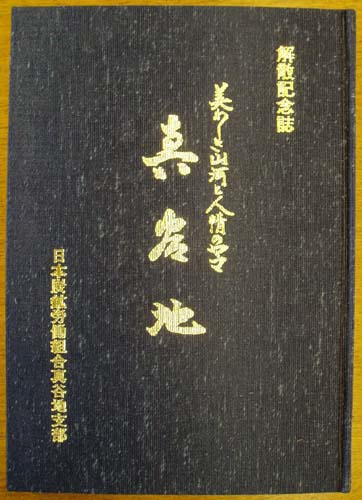 解散記念誌
美わしき山河と人情の
真谷地
日本炭鉱労働組合真谷地支部